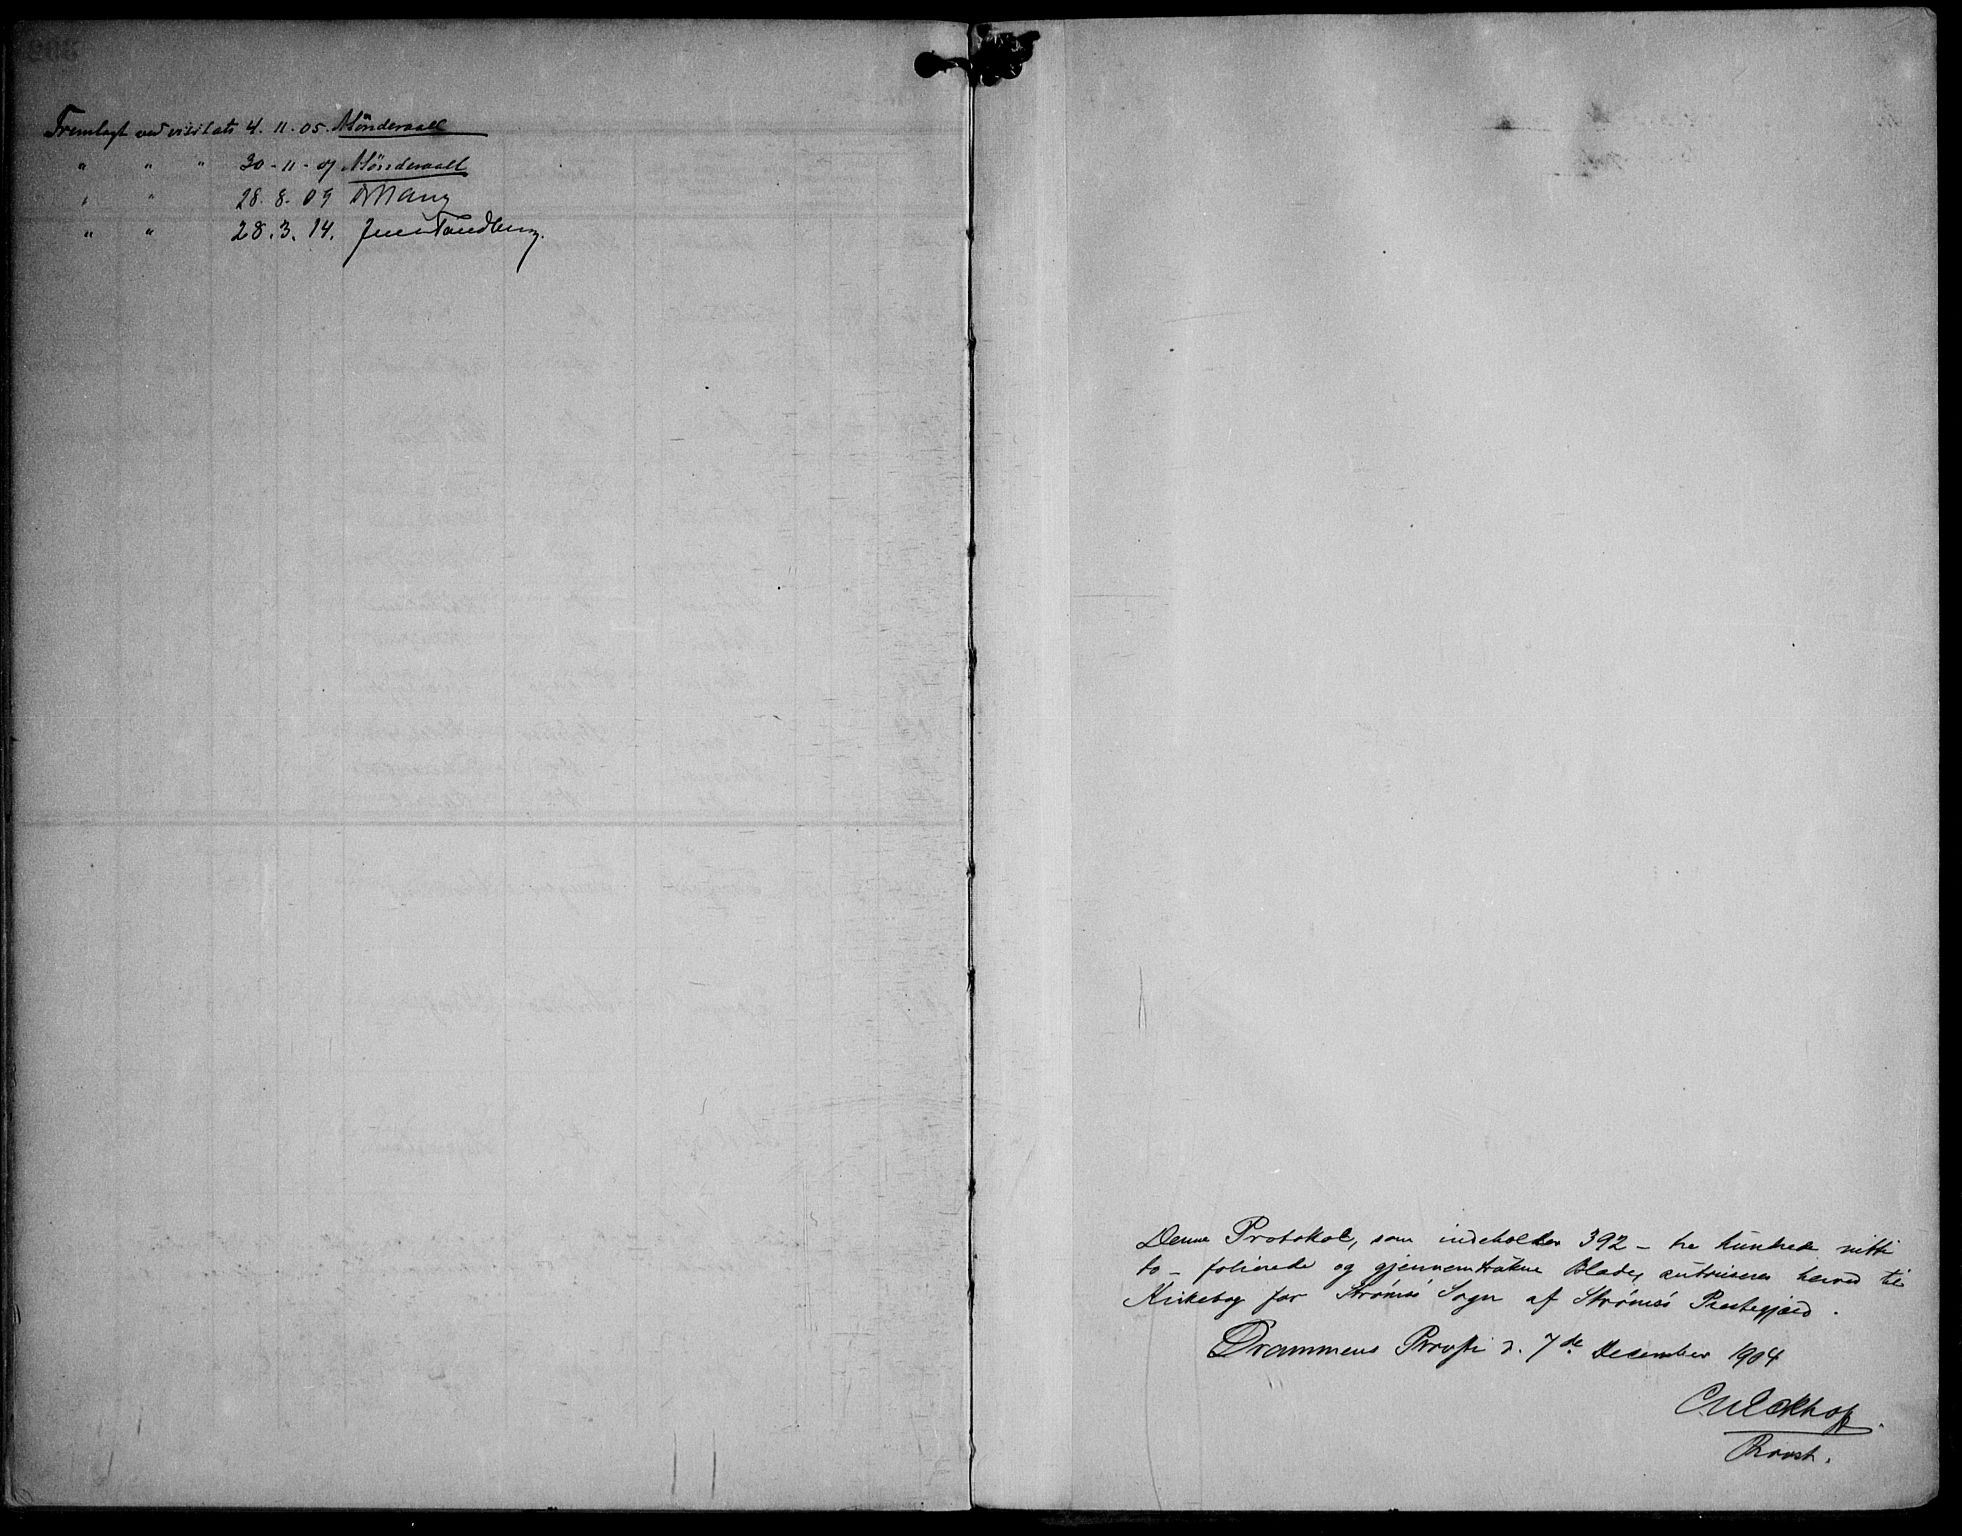 Fremlagt ved visitats 4. 11. 05.
" " " 30 - 11 - 07
" " 28. 8. 09
" " 28. 3. 14. Jens Tandberg.
Denne Protokol, som indeholder 392 - tre hundrede nitti
to - folierede og gjennemtrukne Blade, autoriseres herved til
Kirkebog for Strømsø Sogn af Strømsø Prestegjæld.
Drammens Provsti d. 7de December 1904
Eckhoff.
Provst.